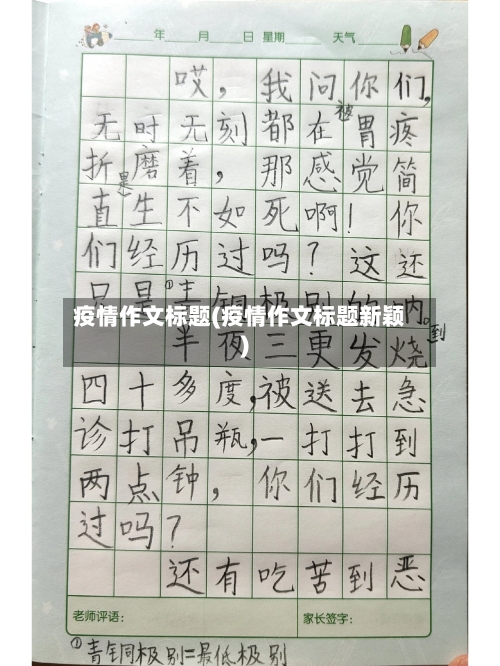 年 月 日 星期 天气
哎，我问你们，
无时无刻都在被胃疼
折磨着，那感觉简
直是生不如死啊！你
们经历过吗？这还
只是①青铜极别的呐。
疫情作文标题(疫情作文标题新颖
)
半夜三更发烧到
四十多度，被送去急
诊打吊瓶，一打打到
两点钟，你们经历
过吗？
还有吃苦到恶
老师评语：
家长签字：
①青铜极别=最低极别